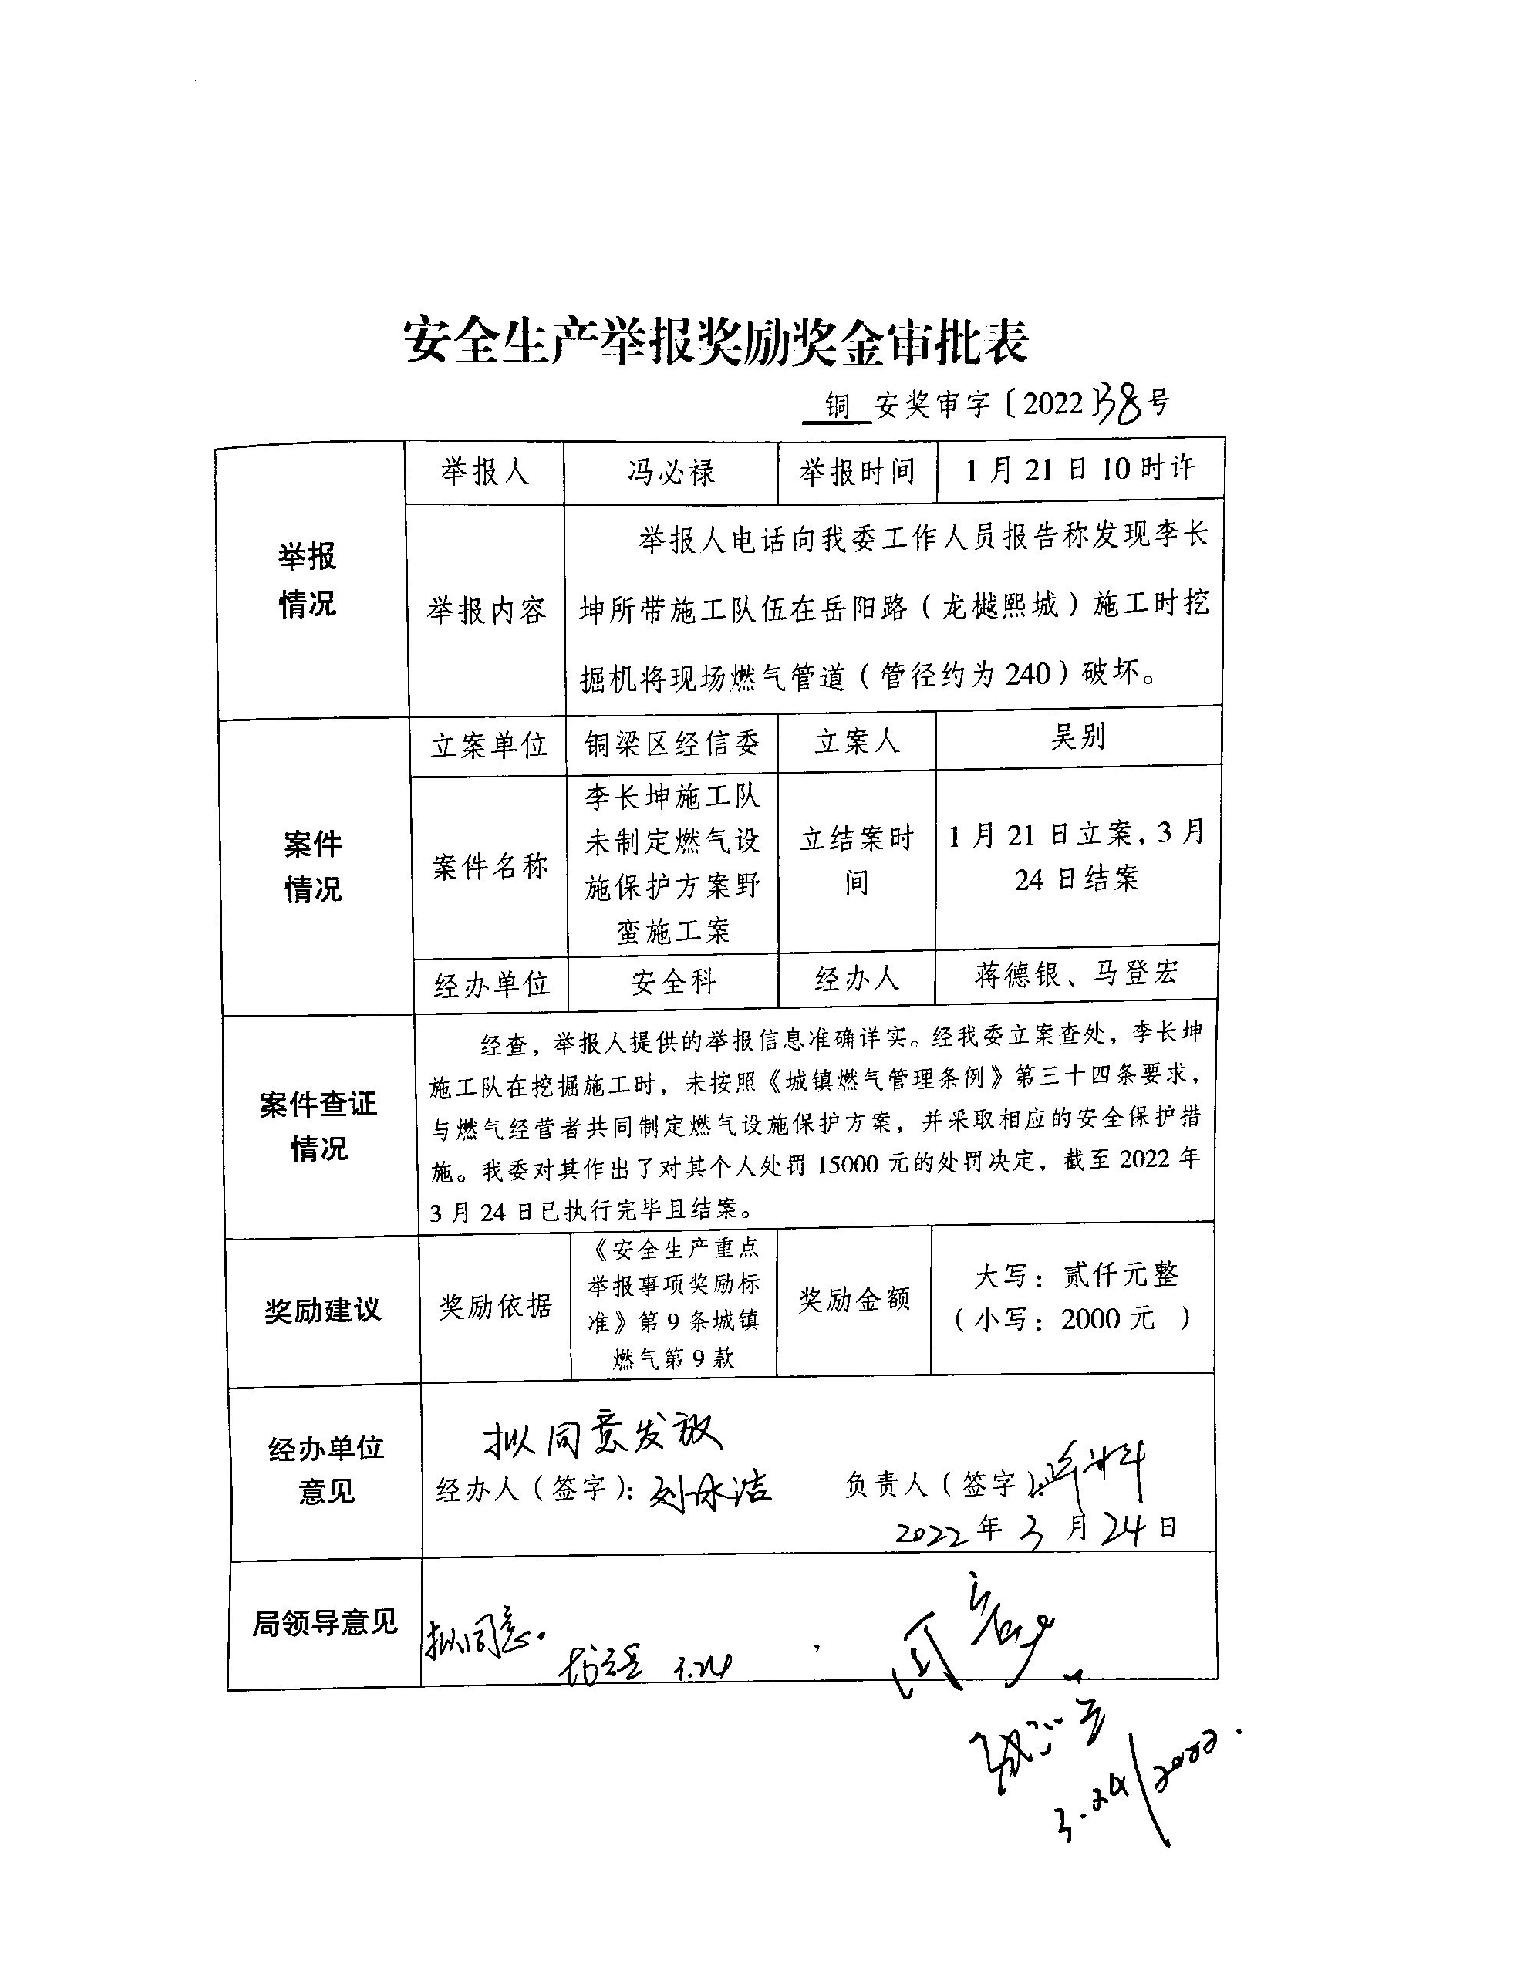 安全生产举报奖励奖金审批表
铜 安奖审字〔2022〕38号
举报
情况
举报人 冯必禄 举报时间 1月21日10时许
举报内容
举报人电话向我委工作人员报告称发现李长
坤所带施工队伍在岳阳路（龙樾熙城）施工时挖
掘机将现场燃气管道（管径约为240）破坏。
案件
情况
立案单位 铜梁区经信委 立案人 吴别
案件名称
李长坤施工队
未制定燃气设
施保护方案野
蛮施工案
立结案时
间
1月21日立案，3月
24日结案
经办单位 安全科 经办人 蒋德银、马登宏
案件查证
情况
经查，举报人提供的举报信息准确详实。经我委立案查处，李长坤
施工队在挖掘施工时，未按照《城镇燃气管理条例》第三十四条要求，
与燃气经营者共同制定燃气设施保护方案，并采取相应的安全保护措
施。我委对其作出了对其个人处罚15000元的处罚决定，截至2022年
3月24日已执行完毕且结案。
奖励建议 奖励依据
《安全生产重点
举报事项奖励标
准》第9条城镇
燃气第9款
奖励金额
大写：贰仟元整
（小写：2000元 ）
经办单位
意见
拟同意发放
经办人（签字）：刘永洁 负责人（签字）：
2022年3月24日
局领导意见
拟同意。
3.24
3.24/2022.